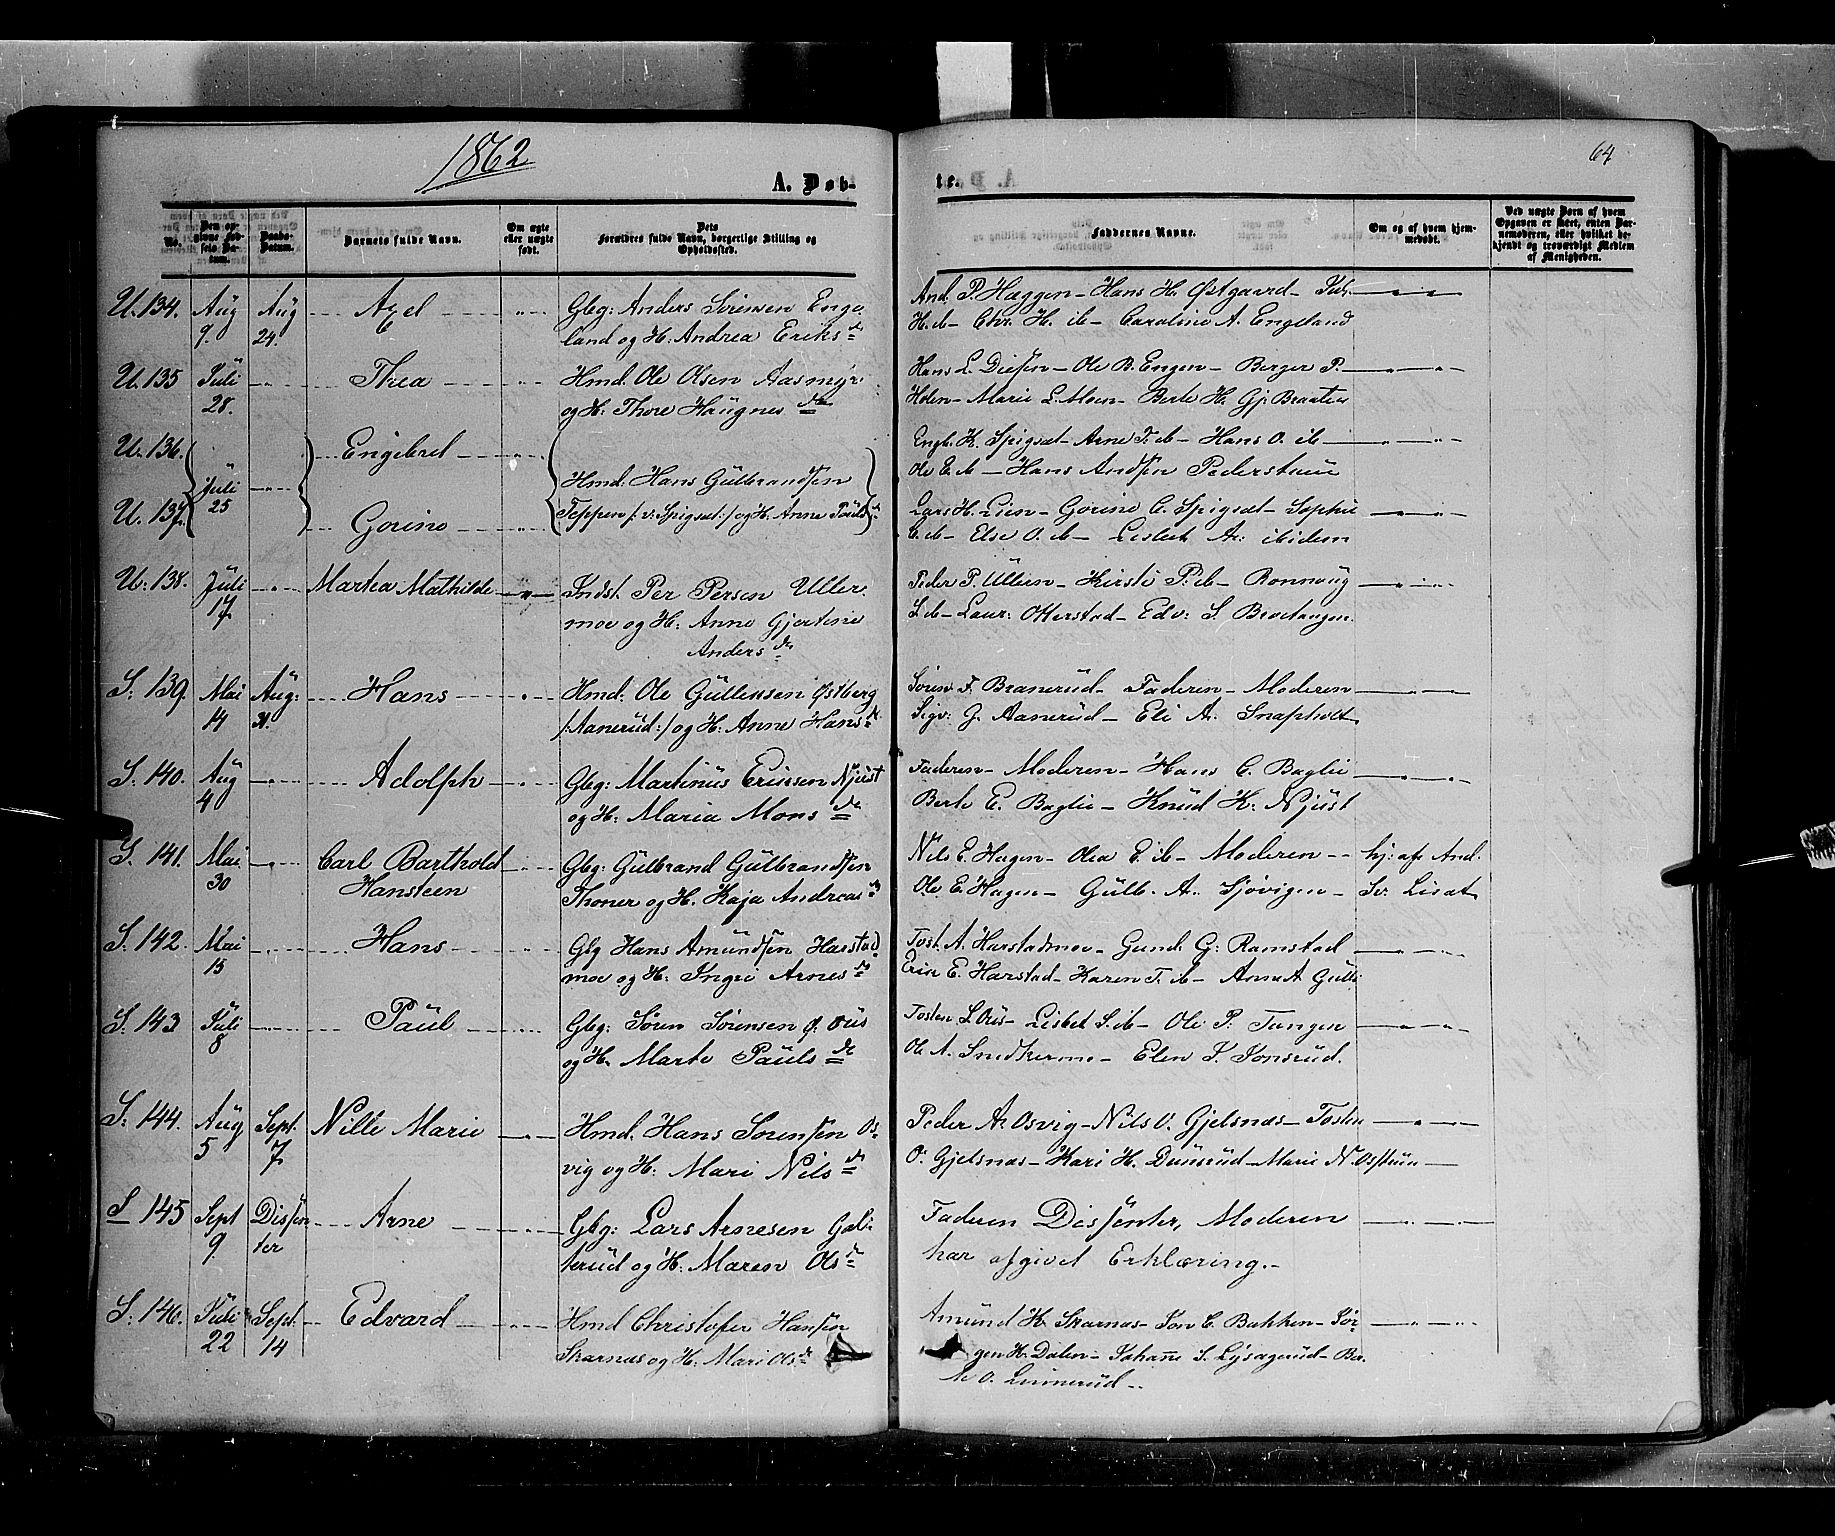 1862
64
A. Døb-
te.
No.
Den op-
givne Fød-
sels Da-
tum.
Daabs-
Datum.
Barnets fulde Navn.
Om ægte
eller uægte
født.
Dets
Forældres fulde Navn, borgerlige Stilling og
Opholdssted.
Faddernes Navne.
Om og af hvem hjem-
medøbt.
Ved uægte Børn af hvem
Opgaven er skeet, enten Bar-
nemoderen, eller hvilket be-
kjendt og troværdigt Medlem
af Menigheden.
U. 134. Aug 9. Aug 24. Axel
Gbg: Anders Sørensen Enge
land og H: Andrea Eriks dr
And. P. Haggen - Hans H. Østgaard -
H. ib - Chr. H. ib - Caroline A. Engeland
U. 135 Juli 28. Thea
Hmd. Ole Olsen Aasmyr
og H: Thore Haugnes dr
Hans L. Diesen - Ole B. Engen - Berger P.
Holen - Marie L. Moen - Berte H. Gj. Braaten
U. 136. Engebret
U. 137. Juli 25 Gorine
Hmd. Hans Gulbrandsen
Teppen /: v. Spigset :/ og H. Anne Pouls d.
Engb. K. Spigset - Arne T. ib - Hans O. ib
Ole E. ib - Hans Andsen Pederstuen
Lars H. Lien - Gorine C. Spigset - Sophie
C. ib - Else O. ib - Lisbet Ar: ibidem
U. 138. Juli 17 Martea Mathilde
Indst. Per Persen Uller
moe og H: Anne Gjertine
Anders dr
Peder P. Ulleen - Kirsti P. ib - Ronnaug
S. ib - Laur: Otterstad - Edv: S. Brotangen.
S: 139. Mai 14 Aug: 31. Hans
Hmd. Ole Gullensen Østberg
/: Aanerud :/ og H: Anne Hans d.
Søren F. Branerud - Faderen - Moderen
Sigv: G. Aanerud - Eli A. Snapholt
S: 140. Aug 4 Adolph
Gbg: Martinus Ericsen Njust
og H: Maria Mons dr
Faderen - Moderen - Hans C. Baglie
Berte E. Baglie - Knud K: Njust
S. 141. Mai 30 Carl Barthold
Hansteen
Gbg: Gulbrand Gulbrandsen
Thoner og H. Kaja Andreas d.
Nils E. Hagen - Olea E. ib - Moderen - - hj: af And.
Ole E. Hagen - Gulb. A. Sjøvigen - Sv. Liset
S. 142. Mai 15 Hans
Gbg Hans Amundsen Harstad
moe og H: Ingri Arnes dr
Tost. A. Harstadmoe - Gund. G: Ramstad
Eric E. Harstad - Karen T. ib - Anna A Gulli
S. 143 Juli 8 Paul
Gbg: Søren Sørensen Ø. Ous
og H. Marte Pauls dr
Tosten S. Ous - Lisbet S. ib - Ole P. Tangen
Ole A. Snedkermo - Elen J. Jonsrud.
S: 144. Aug 5 Sept. 7 Nille Marie
Hmd. Hans Sørensen Os-
vig og H: Mari Nils dr
Peder A. Osvig - Nils O. Gjelsnæs - Tosten
O. Gjelsnæs - Kari H. Dunsrud - Marie N. Osstuen
S 145 Sept 9 Dissen
ter Arne
Gbg: Lars Arnesen Gol-
terud og H: Maren Ols dr
Faderen Dissenter, Moderen
har afgivet Erklæring. -
S: 146. Juli 22 Sept. 14 Edvard
Hmd Christofer Hansen
Skarnæs og H: Mari Ols d.
Amund H. Skarnæs - Jon C. Bakken - Jør
gen H. Dalen - Johanne S. Lysagerud - Ber.
te O. Linnerud -